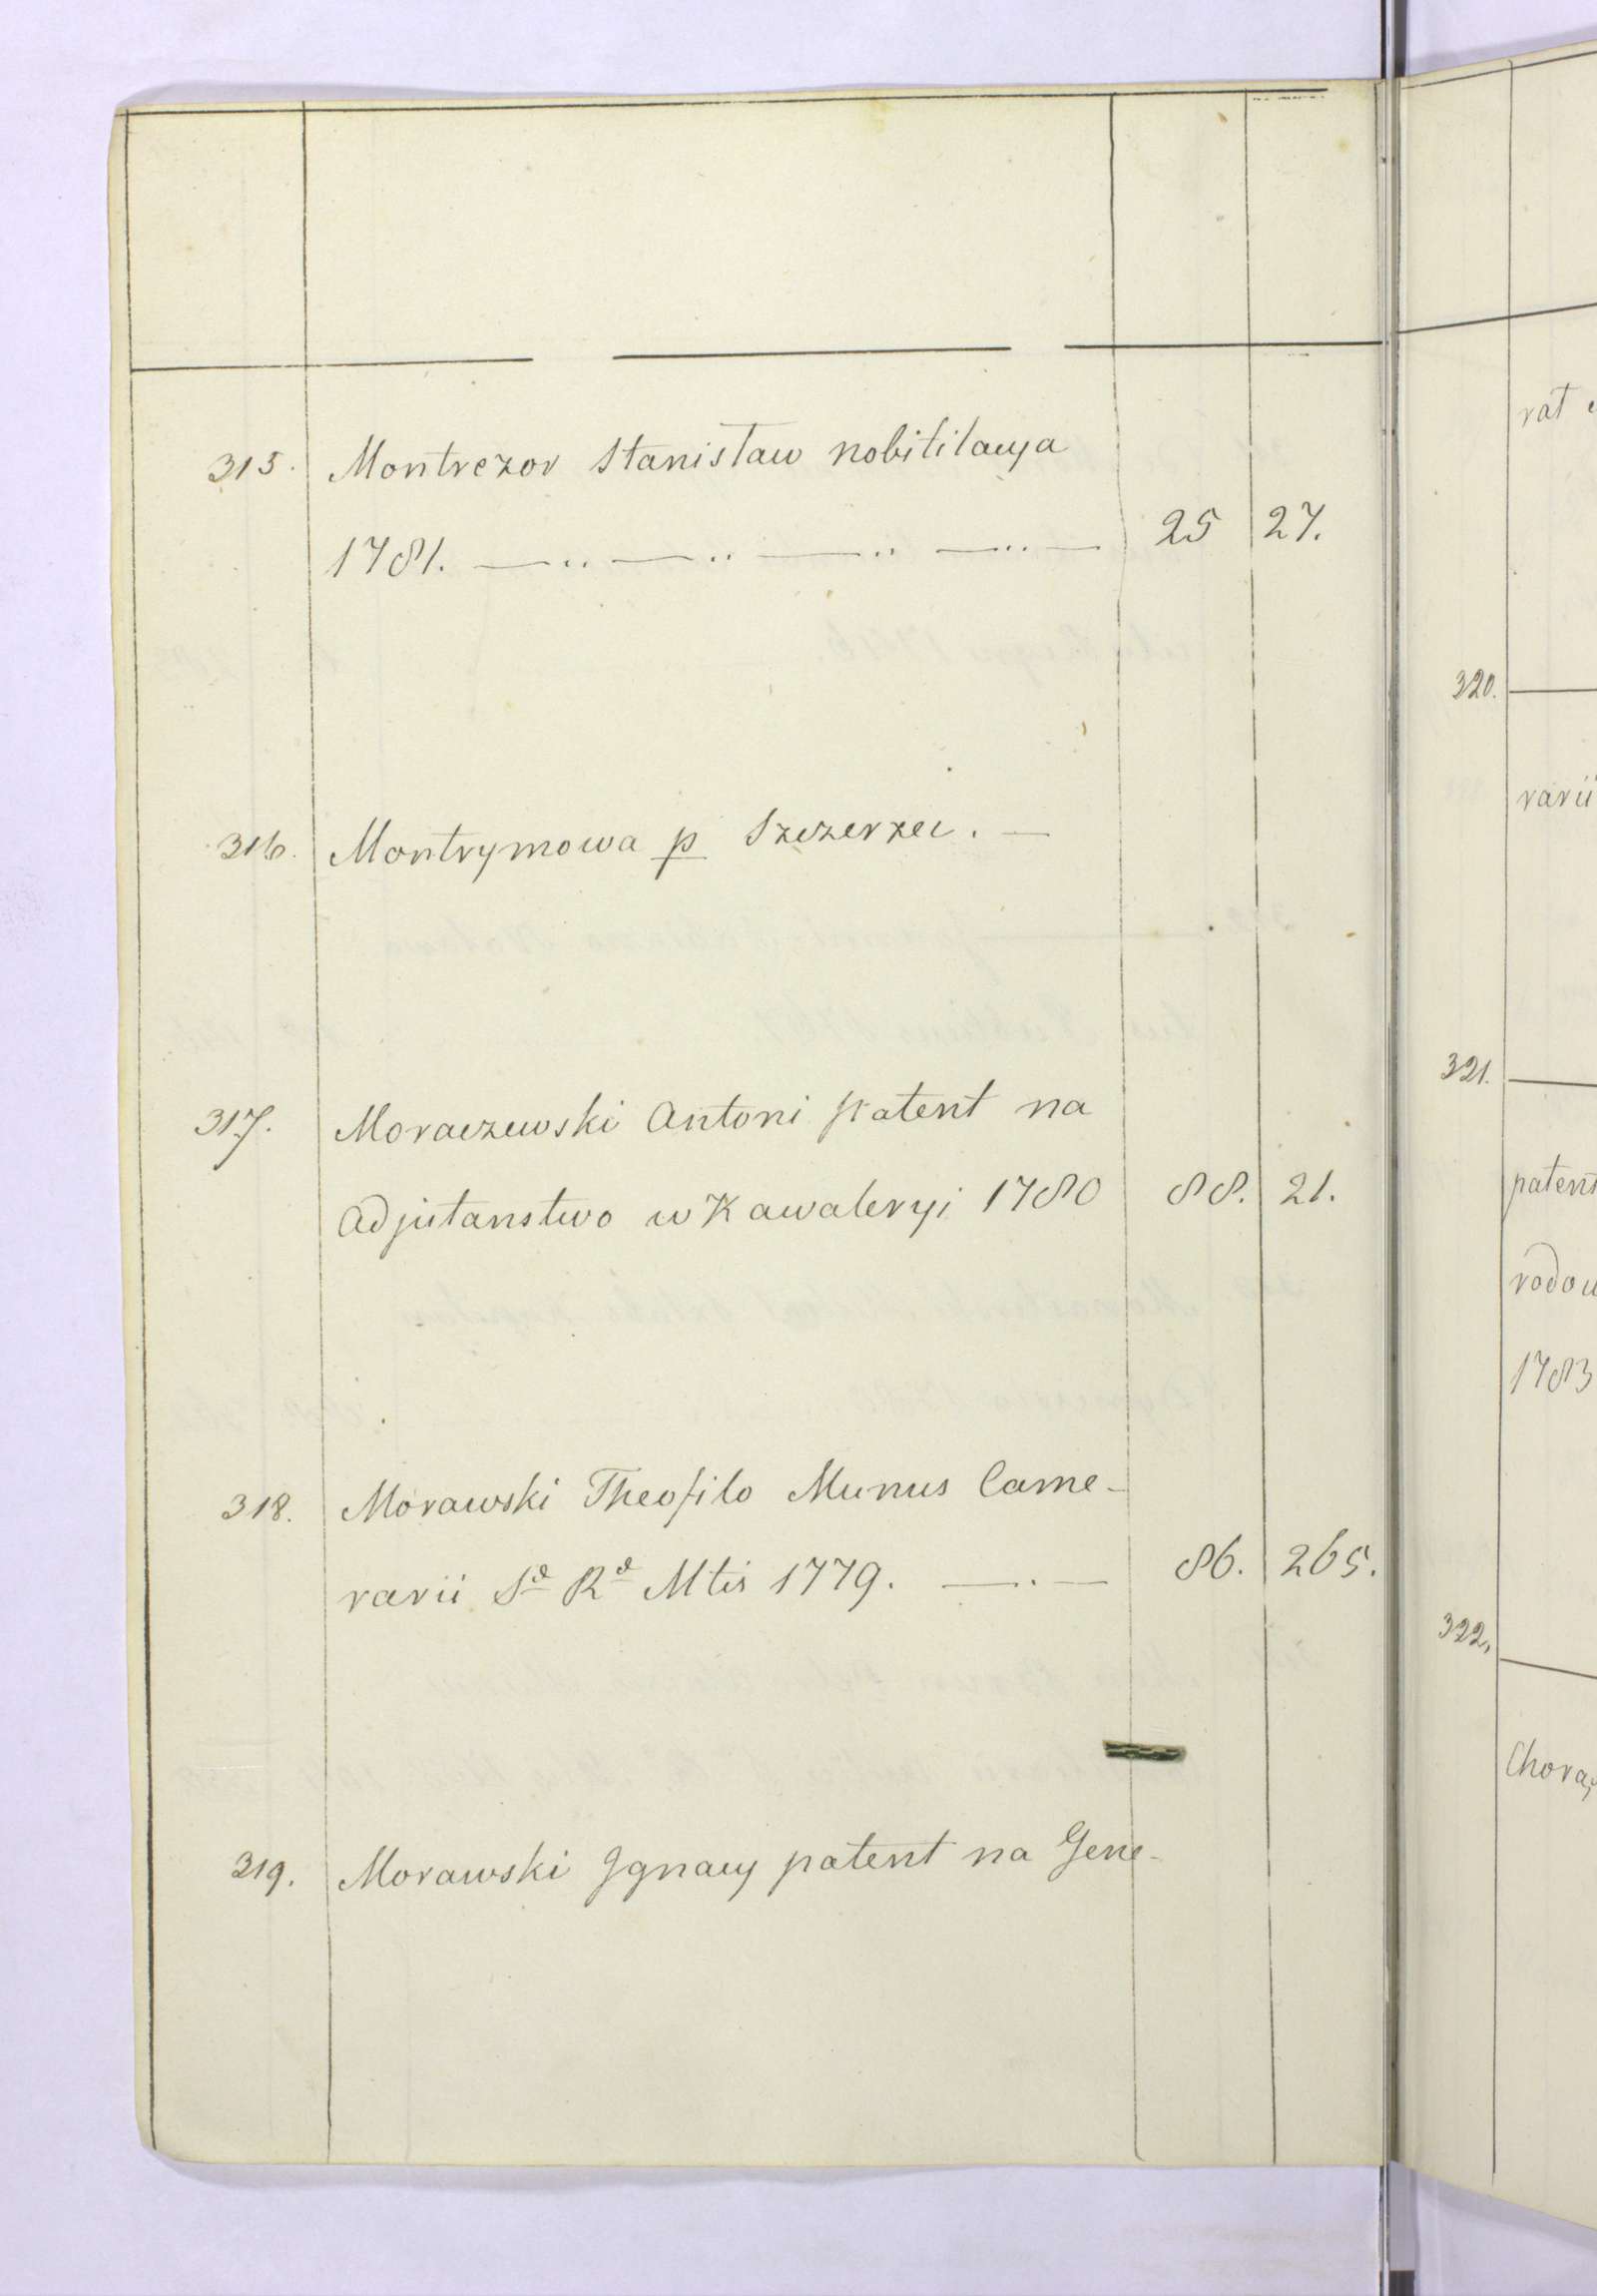 315. Montrezor Stanisław nobilitacya
1781. 25 27.
316. Montrymowa p Szczerzec. —
317. Moraczewski Antoni patent na
Adjutanstwo w Kawaleryi 1780 88. 21.
318. Morawski Theofilo Munus Came-
rarii Sᵃ Rᵃ Mtis 1779. 86. 265.
319. Morawski Ignacy patent na Gene-
rat
320.
rarii
321.
patent
rodow
1783
322.
Chorą